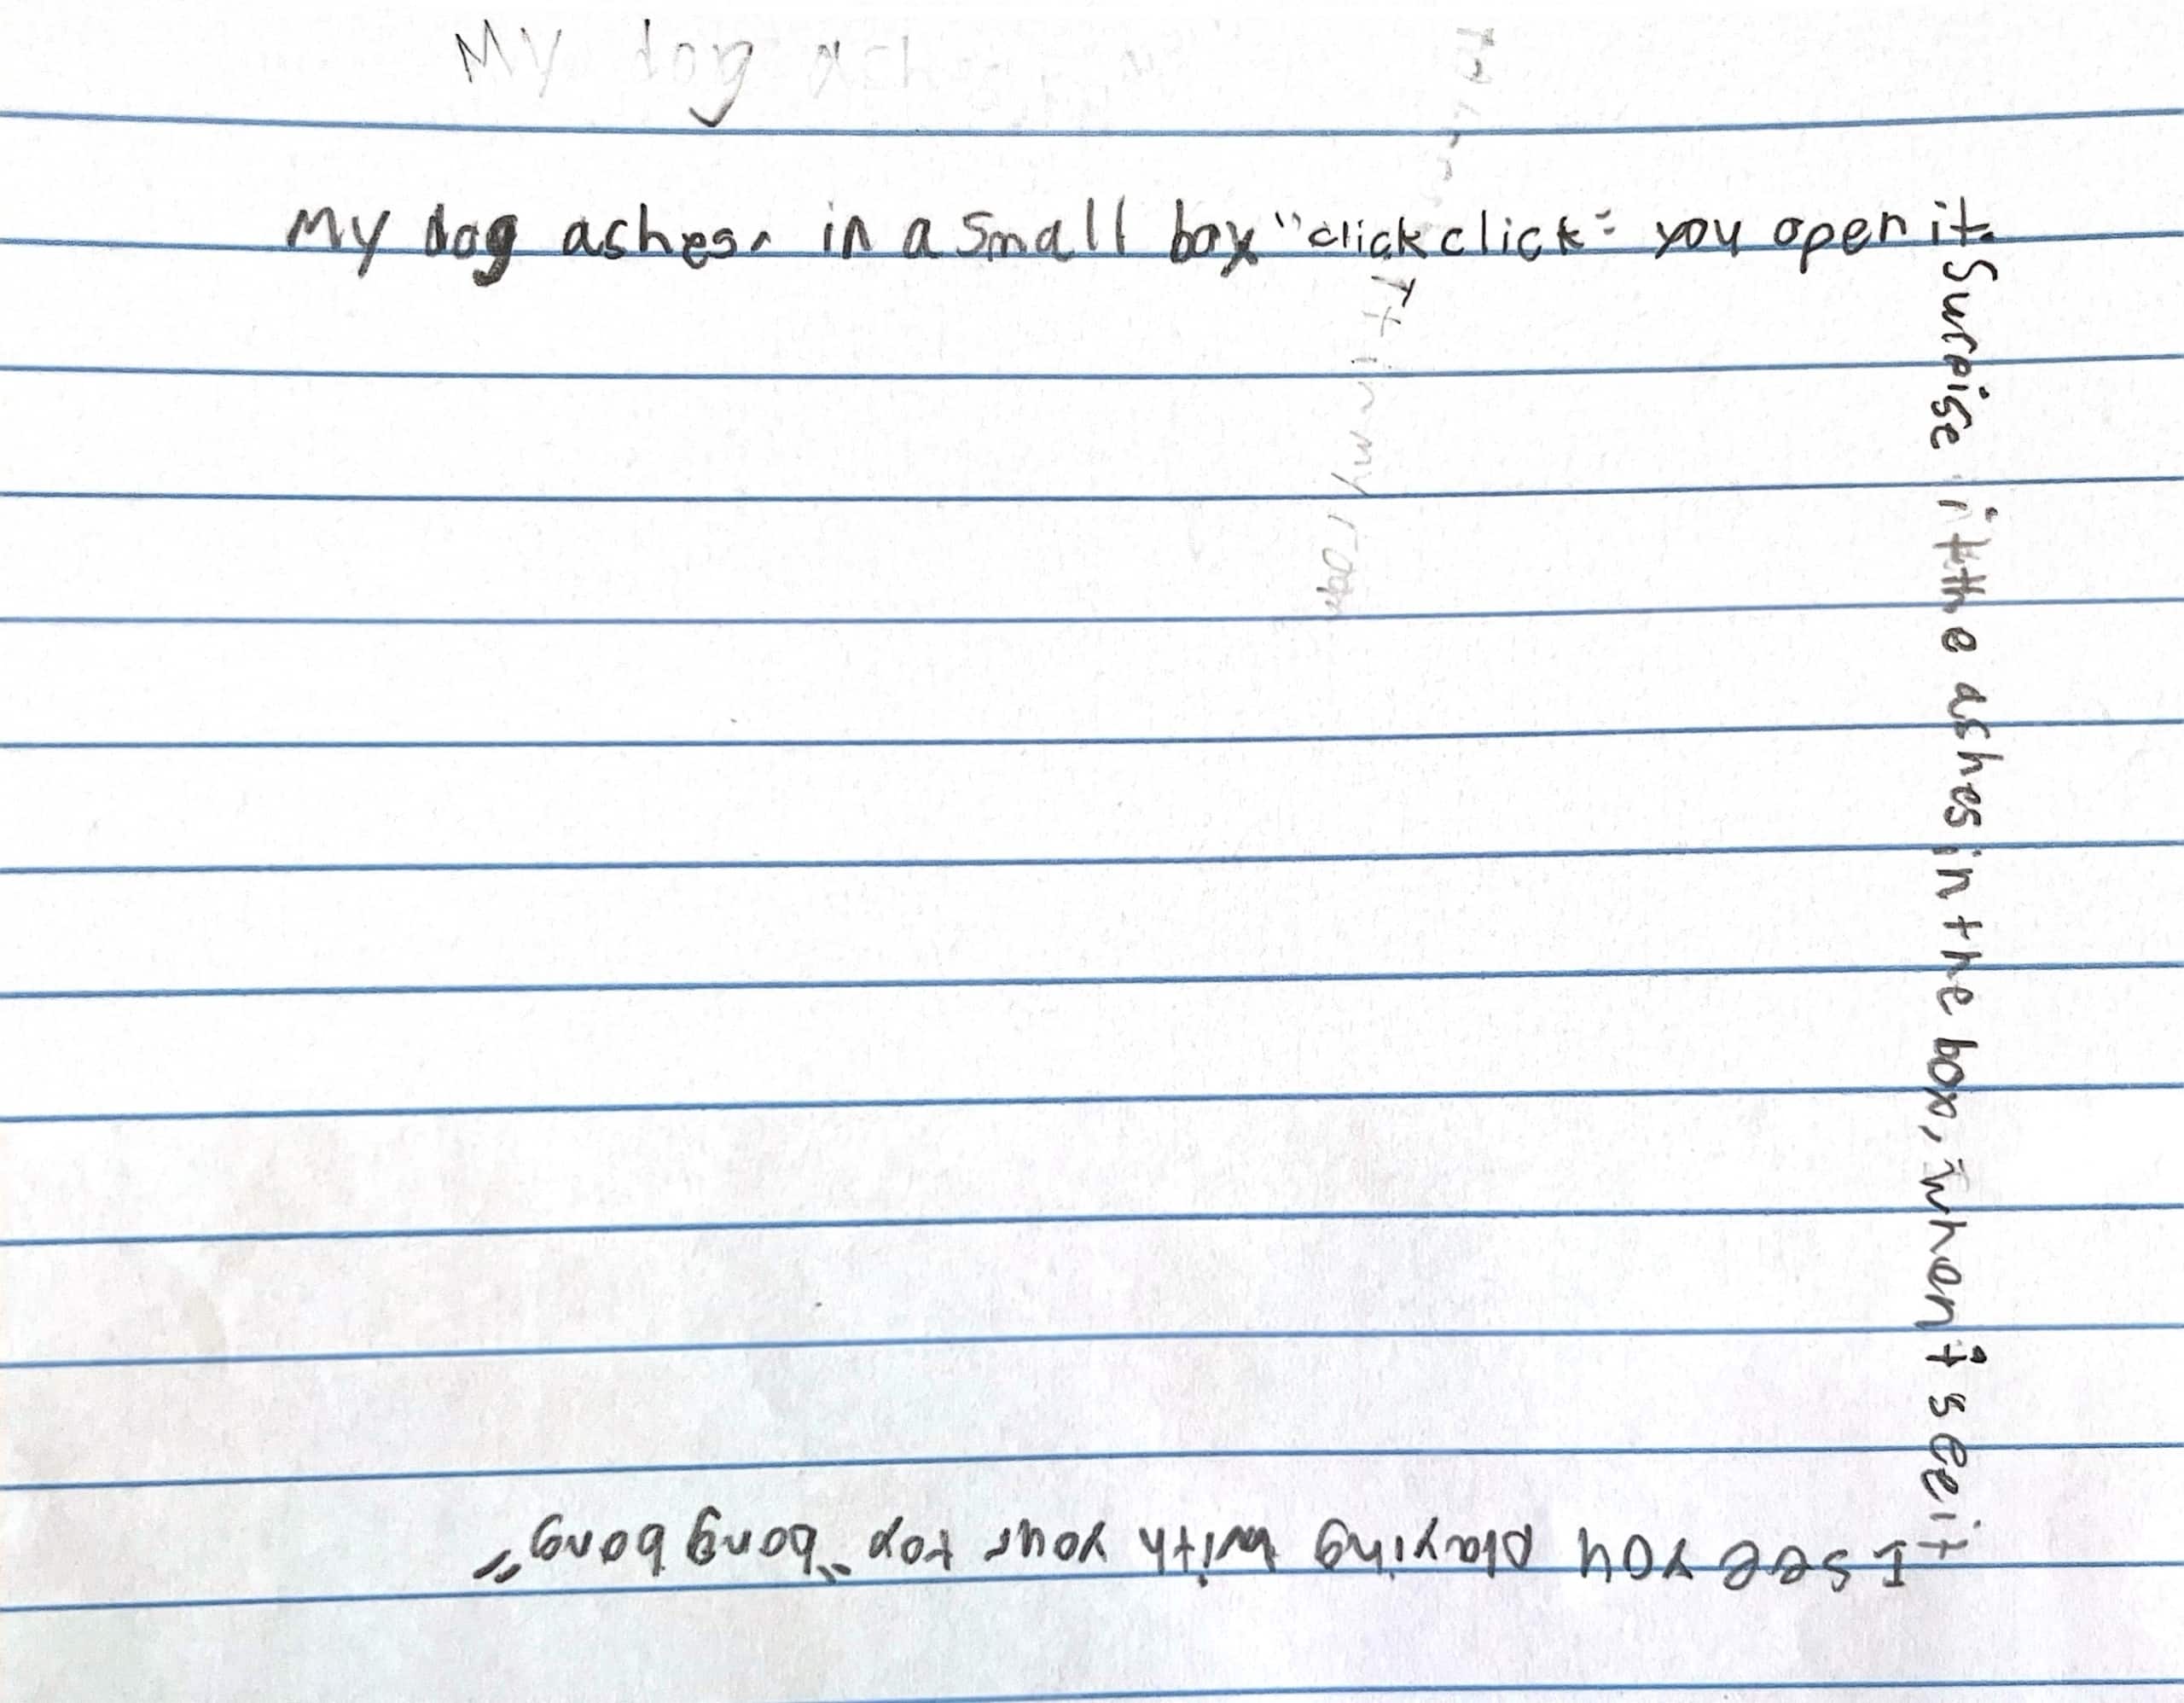 My dog ashes
My dog ashes. in a small box "click click" you open it.
Surpise it the ashes in the box, when i see it
I see you playing with your toy "bong bong"